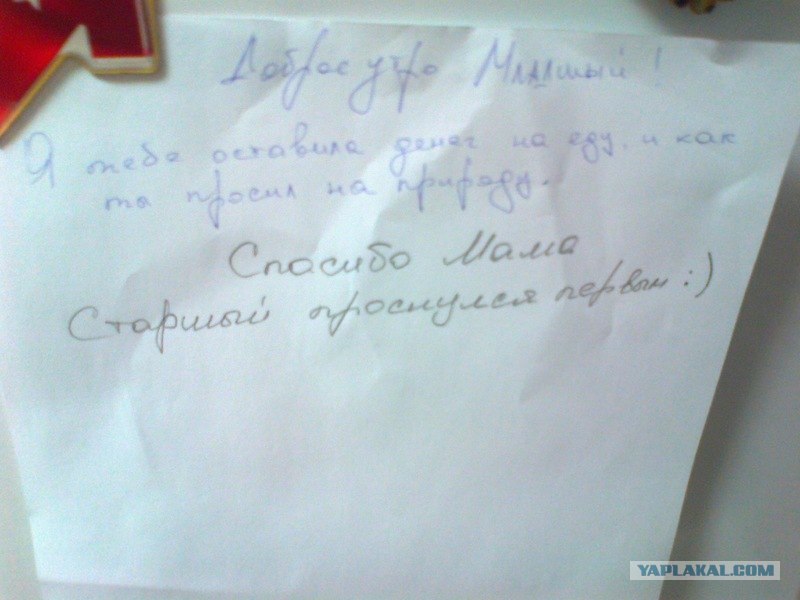 Доброе утро Младший!
Я тебе оставила денег на еду, и как
ты просил на природу.
Спасибо Мама
Старшый проснулся первым :)
YAPLAKAL.COM